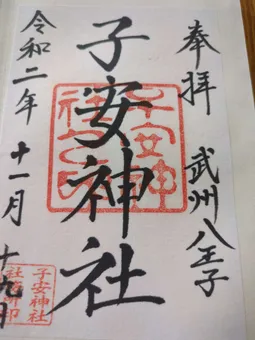 奉拝 武州八王子
子安神社
令和二年 十一月 十九日
子安神
社之印
子安神社
社務所印